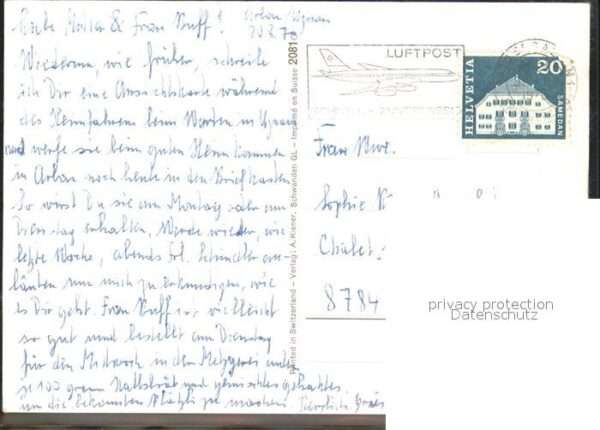 Liebe Mutter & Frau Buff! Arbon
Wiederum, wie früher, schreibe
ich Dir eine Ansichtskarte während
des Heimfahrens beim Warten in
und werfe sie beim guten Heimkommen
in Arbon noch heute in den Briefkasten.
So wirst Du sie am Montag oder am
Dienstag erhalten. Werde wieder, wie
letzte Woche, abends Frl. Schindler an-
läuten um mich zu erkundigen, wie
es Dir geht. Frau Buff ist vielleicht
so gut und bestellt am Dienstag
für den Mittwoch in der Metzgerei
je 100 gramm Kalbsbrät und gemischtes Gehacktes,
um die bekannten Plätzli zu machen. Herzliche
Printed in Switzerland – Verlag: A. Kiener, Schwanden GL – Imprimé en Suisse 20810
LUFTPOST
HELVETIA
20
SAMEDAN
Frau Wwe.
Sophie
Chalet
8784
privacy protection
Datenschutz